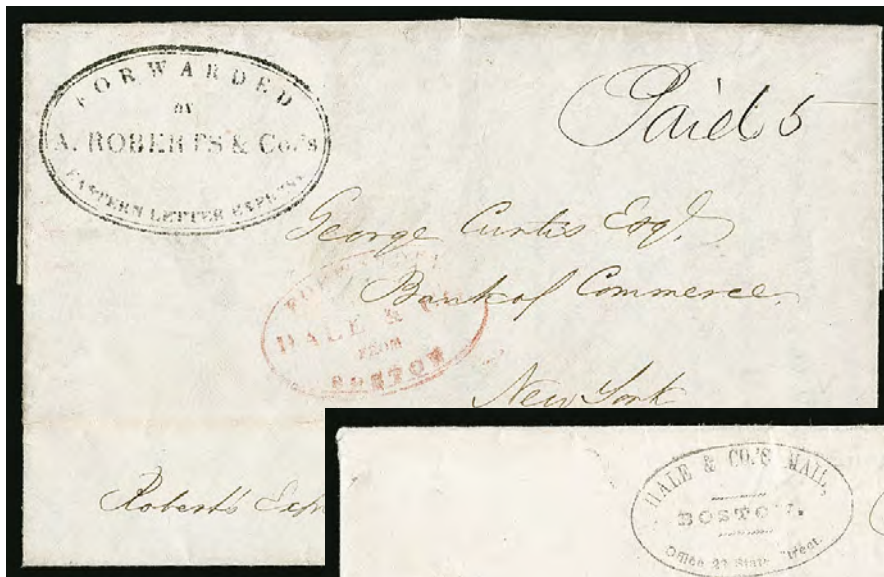 FORWARDED
BY
A. ROBERTS & Co.'s
EASTERN LETTER EXPRESS
Paid 5
George Curtis Esq.
Bank of Commerce
New York
FORWARDED
HALE & Co
FROM
BOSTON
Roberts
HALE & CO.'S MAIL,
BOSTON.
Office 23 State Street.